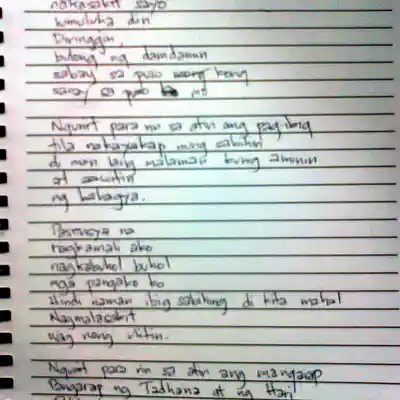 nakasakit sayo
lumuluha din
Diringgin,
bulong ng damdamin
sabay sa puso
sanay sa puso mo
Ngunit para rin sa atin ang pag-ibig
tila nakayakap nung sabihin
di man lang malaman kung aminin
at
ng bahagya.
Pasensya na
nagkamali ako
nagkabuhol buhol
mga pangako ko
Hindi naman ibig sabihing di kita mahal
Nagmalasakit
wag nang ulitin.
Ngunit para rin sa atin ang mangarap
Pangarap ng Tadhana at ng Hari